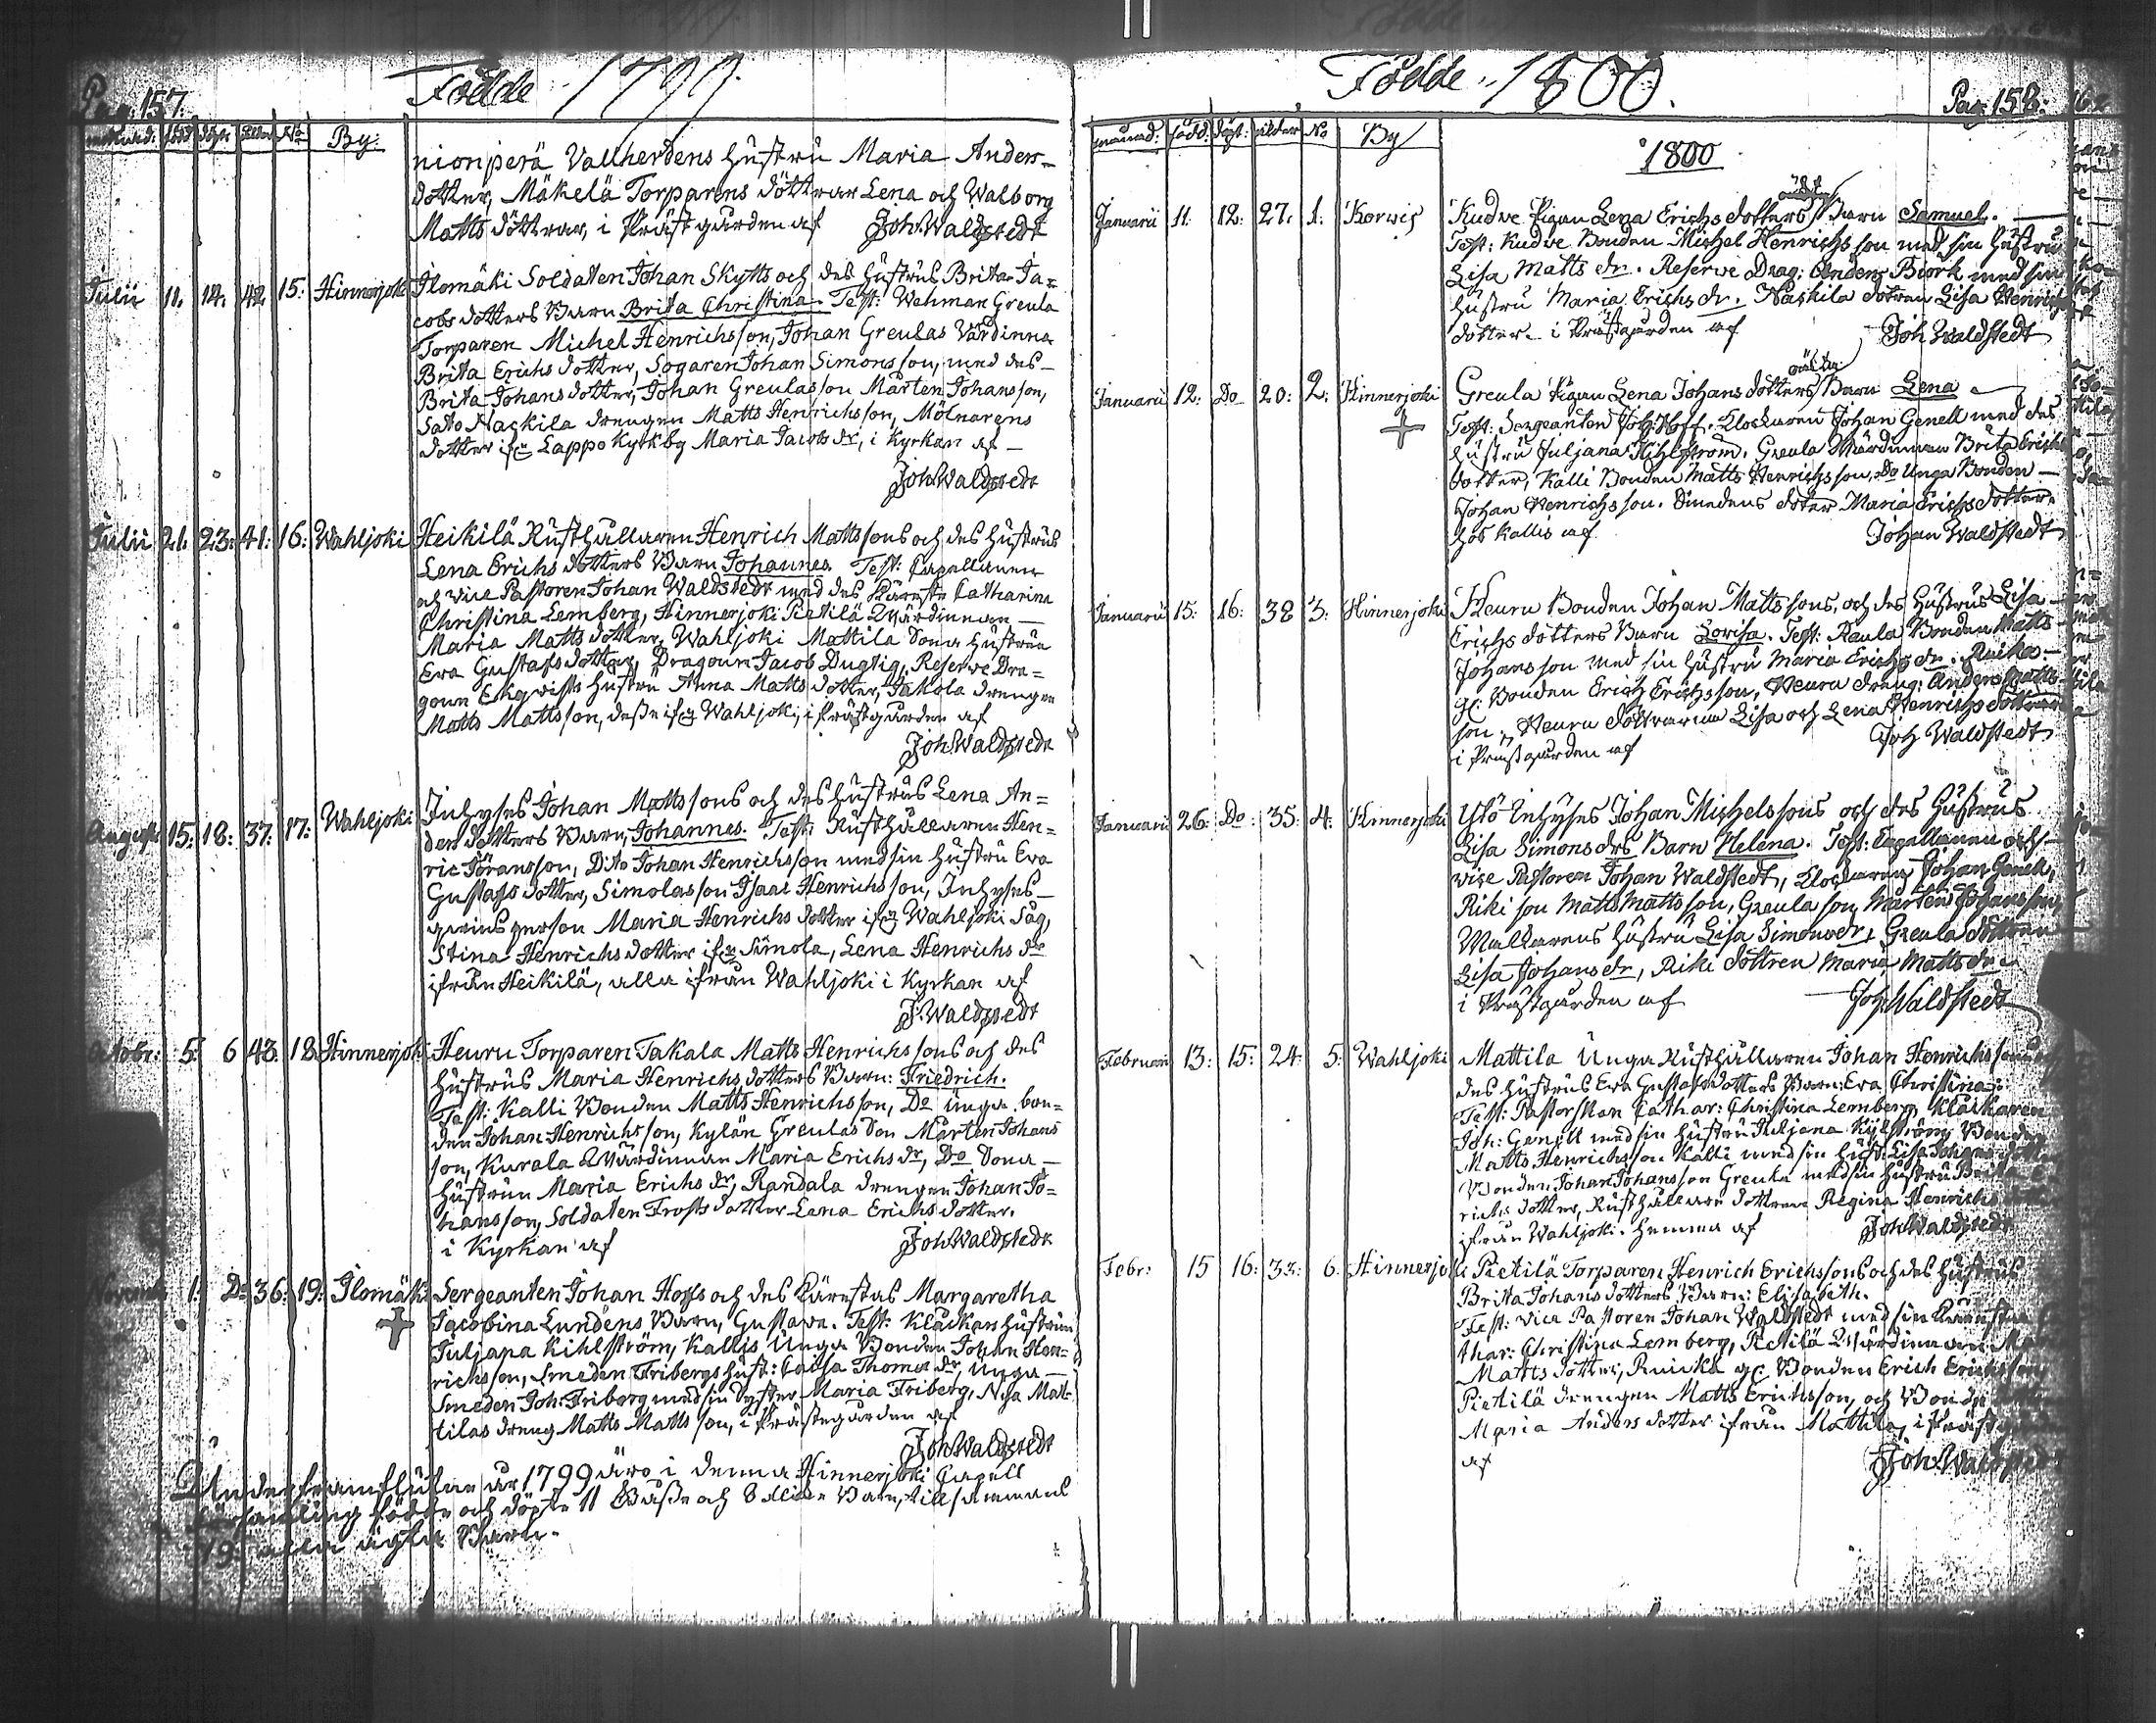 Pag. 157.
Födde 1799.
månad: född döpt ålder No By:
nionperä Vallherdens hustru Maria Anders-
dotter, Mäkelä Torparens döttrar Lena och Walborg
Matts döttrar, i Prästgården af Joh. Waldstedt
Julii 11. 14. 42 15. Hinnerjoki Ilomäki Soldaten Johan Skytts och des hustrus Brita Ja=
cobs dotters Barn Brita Christina. Test: Wehman Greula
Torparen Michel Henrichsson, Johan Greulas Värdinna
Brita Erichs dotter, Sogaren Johan Simonsson, med des
Brita Johans dotter, Johan Greulas son Mårten Johansson,
Sato Naskila drengen Matts Henrichsson, Mölnarens
dotter ifn Lappo Kyrkby Maria Jacobs dr, i Kyrkan af
Joh Waldstedt
Julii 21. 23. 41. 16. Wahljoki Heikilä Rusthållaren Henrich Mattssons och des hustrus
Lena Erichs dotters Barn Johannes. Test: Capellanen
och Vice Pastoren Johan Waldstedt med des Käresta Catharina
Christina Lemberg, Hinnerjoki Pietilä Wärdinnan
Maria Matts dotter, Wahljoki Mattila Sona hustrun
Eva Gustafs dotter, Dragoun Jacob Dugtig, Reserve Dra=
goun Ekqvists hustru Anna Matts dotter, Jakola drengen
Matts Mattsson, desse ifn Wahljoki, i Prästgården af
Joh Waldstedt
August 15. 18. 37. 17. Wahljoki Inhyses Johan Mattssons och des hustrus Lena An=
ders dotters Barn, Johannes. Test: Rusthållaren Hen=
ric Jöransson, Dito Johan Henrichsson med sin hustru Eva
Gustafs dotter, Simolas son Isaac Henrichsson, Inhyses
qvins person Maria Henrichs dotter ifn Wahljoki Såg,
Stina Henrichs dotter ifn Simola, Lena Henrichs dr
ifrån Heikilä, alla ifrån Wahljoki i Kyrkan af
J. Waldstedt
Octobr: 5. 6 43. 18. Hinnerjoki Heuru Torparen Takala Matts Henrichssons och des
hustrus Maria Henrichs dotters Barn: Friedrich.
Test: Kalli Bonden Matts Henrichsson, Do Unga bon=
den Johan Henrichsson, Kylän Greulas Son Mårten Johans
son, Kurala Wärdinnan Maria Erichs dr, Do Sona
hustrun Maria Erichs dr, Randala drengen Johan Jo=
hansson, Soldaten Frosts dotter Lena Erichs dotter.
i Kyrkan af Joh Waldstedt
Novemb 1. Do 36. 19. Ilomäki Sergeanten Johan Hoffs och des Kärestas Margaretha
Jacobina Lundens Barn, Gustava. Test: Klåckars hustrun
Juliana Kihlström, Kallis Unga Bonden Johan Hen=
richsson, Smeden Fribergs hust: Caisa Thomas dr, Unga
Smeden Joh: Friberg med sin Syster Maria Friberg, Maf Mat=
tilas dreng Matts Mattsson, i Prästegården af
Joh Waldstedt
Under framflutne år 1799 äro i denna Hinnerjoki Capell
församling födde och döpte 11 Gåsse och 8 Flicke Barn, tillsammans
19. alla ägta Barn.
Födde 1800.
Pag. 158.
månad: född: döpt: ålder No By
1800
Januarii 11. 12. 27. 1. Korwis Kudve Pigan Lena Erichs dotters oächta Barn Samuel.
Test: Kudve Bonden Michel Henrichsson med sin hustru
Lisa Matts dr. Reserve Drag: Anders Biörk med sin
hustru Maria Erichs dr. Naskila dotren Lisa Henrichs
dotter. i Prästgården af Joh Waldstedt
Januarii 12. Do 20. 2. Hinnerjoki Greula Pigan Lena Johans dotters oächta Barn Lena
Test: Sergeanten Joh: Hoff. Clockaren Johan Genell med des
hustru Juljana Kihlström. Greula Wärdinnan Brita Erichs
dotter, Kalli Bonden Matts Henrichsson, Do Unga Bonden
Johan Henrichsson. Smedens doter Maria Erichs dotter.
hos Kallis af Johan Waldstedt
Januarii 15. 16. 38 3. Hinnerjoki Heuru Bonden Johan Mattssons, och des hustrus Lisa
Erichs dotters Barn Lovisa. Test: Raula Bonden Matts
Johansson med sin hustru Maria Erichs dr. Ruikas
gl: Bonden Erich Erichsson, Heuru dreng: Anders Matts
son, Heuru döttrarna Lisa och Lena Henrichs döttrar
i Prästgården af Joh Waldstedt
Januarii 26. Do. 35. 4. Hinnerjoki Ylö Inhyses Johan Michelssons och des hustrus
Lisa Simons drs Barn Helena. Test: Capellanen och
Vice Pastoren Johan Waldstedt, Klockaren Johan Genell,
Riki son Matts Mattsson, Greula son Mårten Johansson
Mulkarens hustru Lisa Simonsdr, Greula dottren
Lisa Johans dr, Riki dottren Maria Matts dr
i Prästgården af Joh. Waldstedt
Februari 13. 15. 24. 5. Wahljoki Mattila Unga Rusthållaren Johan Henrichssons
des hustrus Eva Gustafs dotters Barn: Eva Christina:
Test: Pastorskan Cathar: Christina Lemberg, Klåckaren
Joh: Genell med sin hustru Juljana Kylström, Bonden
Matts Henrichsson Kalli med sin hust: Lisa Johans
Bonden Johan Johansson Greula med sin hustru Brita
richs dotter, Rusthållare dottren Regina Henrichs
ifrån Wahljoki. hemma af Joh Waldstedt
Febr: 15 16. 33. 6. Hinnerjoki Pietilä Torparen Henrich Erichssons och des hustrus
Brita Johans dotters Barn: Elisabeth.
Test: Vice Pastoren Johan Waldstedt med sin Käresta
thar: Christina Lemberg, Pietilä Wärdinnan
Matts dotter, Ruicka gl: Bonden Erich Erichsson,
Pietilä drengen Matts Erichsson, och Bonde
Maria Anders dotter ifrån Mattila, i Prästg
af Joh: Waldstedt